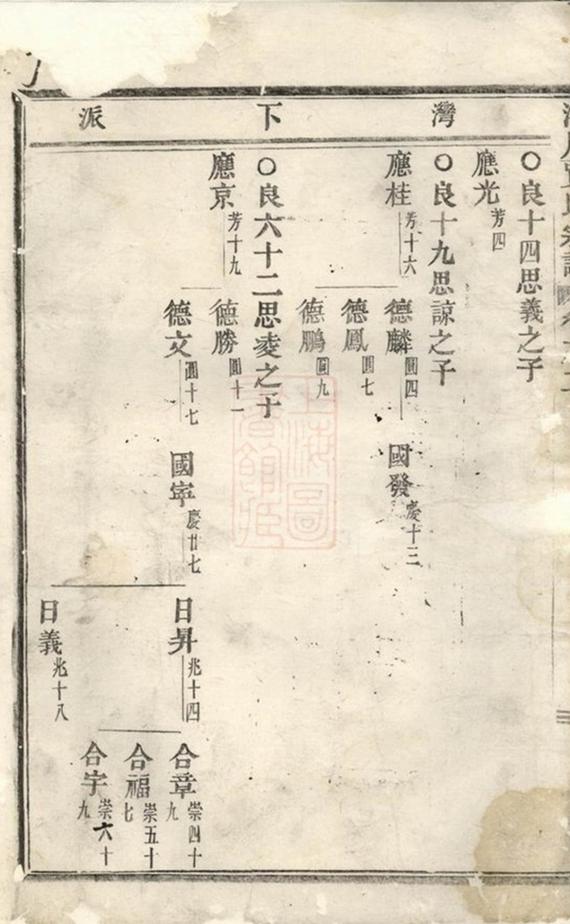 灣下派
○良十四思義之子
應光 芳四
○良十九思諒之子
應桂 芳十六
德麟 圓四
國發 慶十三
德鳳 圓七
德鵬 圓九
○良六十二思凌之子
應京 芳十九
德勝 圓十一
德文 圓十七
國寧 慶廿七
日昇 兆十四
合章 崇四十九
合福 崇五十七
合宇 崇六十九
日義 兆十八
上海圖書館藏